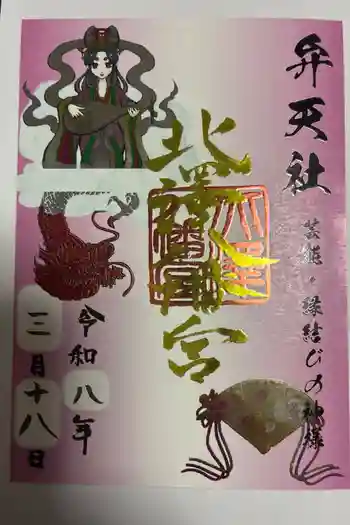 弁天社
芸能・縁結びの神様
北澤八幡宮
令和八年
三月十八日